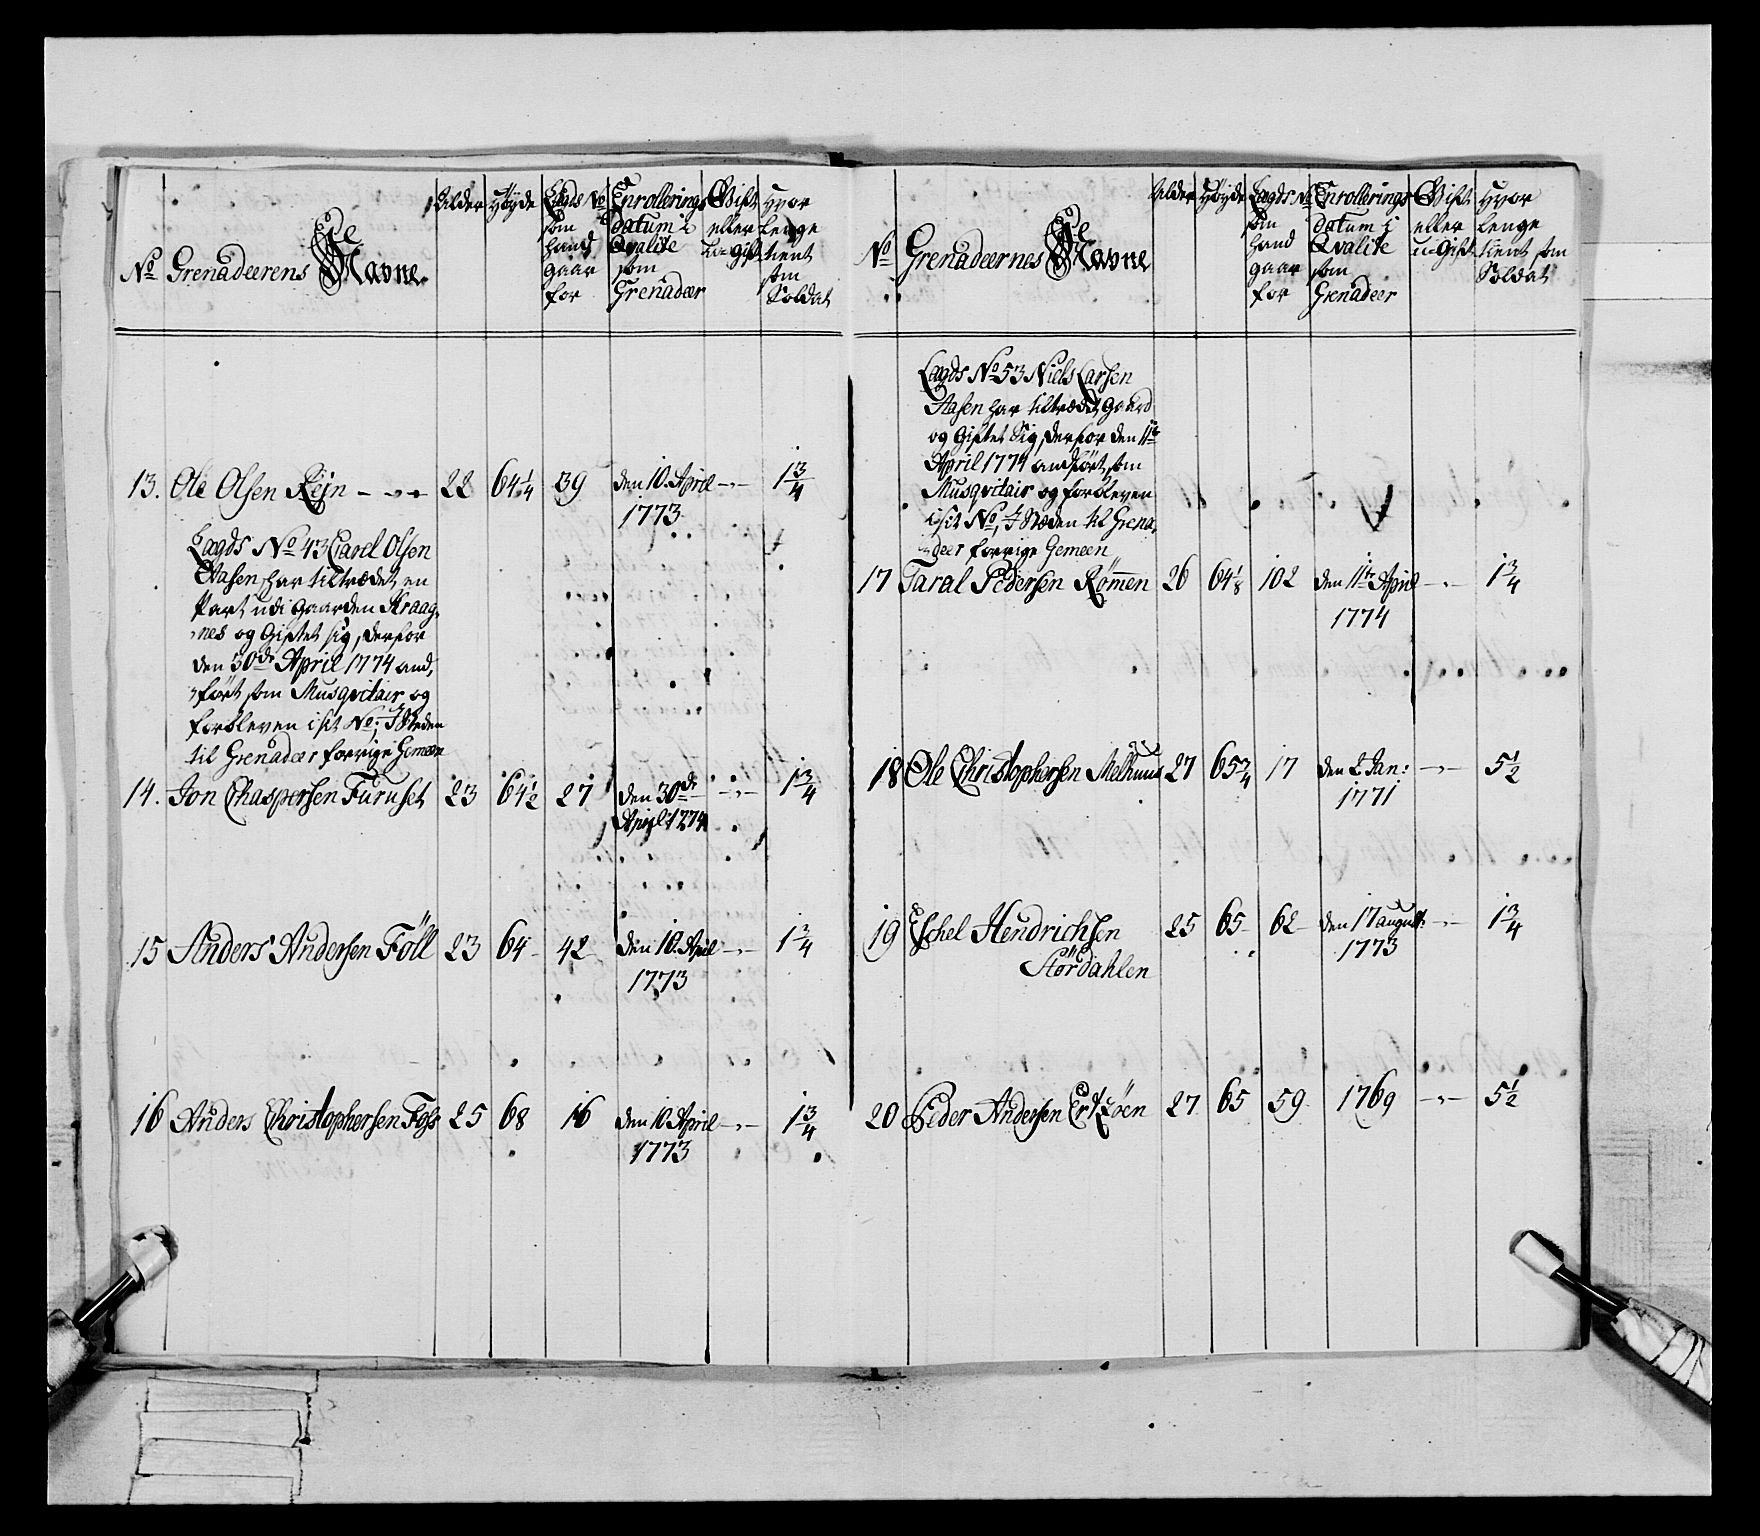 No Grenadeerens Navne
Alder
Høyde
Lægds No
som
hand
gaar
for
Enrollerings
datum i
Qvalite
som
Grenadeer
Gift
eller
u-Gift
Hvor
Lenge
tient
som
Soldat
13. Ole Olsen Rejn 22 64 1/4 39 den 10. April 1 3/4
1773
Lægds No 43 Carel Olsen
Aasen har tiltrædet en
Part udi Gaarden Kraag-
nes og Giftet sig, derfor
den 30de April 1774 and-
ført som Musqvitair og
forbleven i sit No; I Steden
til Grenadeer forrige Gemeen
14. Jon Chaspersen Furuset 23 64 1/2 27 den 30de 1 3/4
April 1774
15 Anders Andersen Föll 23 64 42 den 10. April 1 3/4
1773
16 Anders Christophersen Foss 25 68 16 den 10 April 1 3/4
1773
No Grenadeernes Navne
Alder
Høyde
Lægds No
som
hand
gaar
for
Enrollerings
datum i
Qvalite
som
Grenadeer
Gift
eller
u-Gift
Hvor
Lenge
tient som
Soldat
Lægds No 53 Niels Larsen
Aasen har tiltrædet Gaard
og Giftet Sig, derfor den 11te
April 1774 andført som
Musqvitair og forbleven
i sit No, I Steden til Grena-
deer forrige Gemeen
17 Taral Pedersen Römen 26 64 1/8 102 den 11te April 1 3/4
1774
18 Ole Christophersen Melhuus 27 65 3/4 17 den 2 Jan: 5 1/2
1771
19 Eschel Hendrichsen 25 65 62 den 17 august: 1 3/4
Stördahlen 1773
20 Peder Andersen Ertzöen 27 65 59 1769 5 1/2